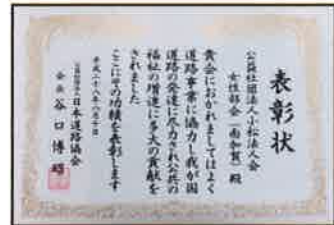 表彰状
公益社団法人小松法人会
女性部会(南加賀)殿
貴会におかれましてはよく
道路事業に協力し我が国
道路の発達に尽力され公共の
福祉の増進に多大の貢献を
されました
ここにその功績を表彰します
平成二十八年六月十日
公益社団法人日本道路協会
会長 谷口博昭